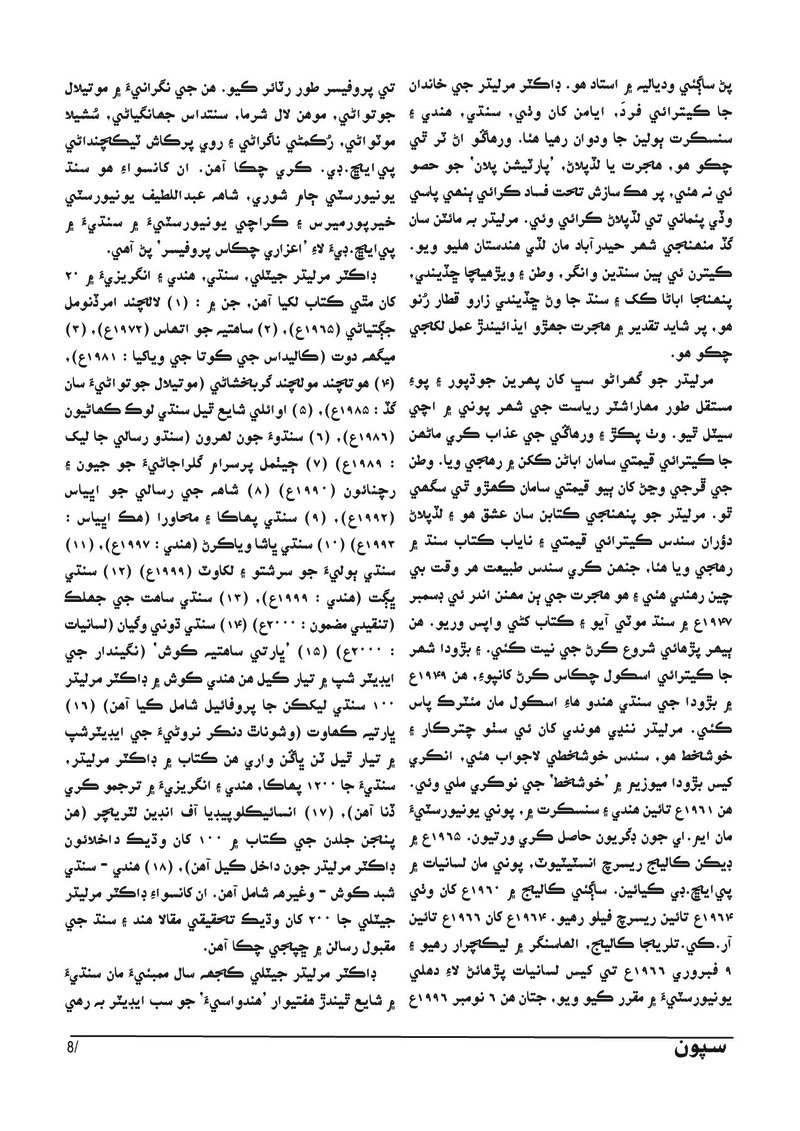 پڻ ساڳئي وديالیہ ۾ استاد هو. ڊاڪٽر مرليڌر جي خاندان
جا ڪيترائي فردَ، ايامن کان وٺي، سنڌي، هندي ۽
سنسڪرت ٻولين جا ودوان رهيا هئا. ورهاڱو اڻ ٽر ٿي
چڪو هو، هجرت يا لڏپلاڻ، 'پارٽيشن پلان' جو حصو
ئي نہ هئي، پر هڪ سازش تحت فساد ڪرائي ٻنهي پاسي
وڏي پئماني تي لڏپلاڻ ڪرائي وئي. مرليڌر بہ مائٽن سان
گڏ منهنجي شهر حيدرآباد مان لڏي هندستان هليو ويو.
ڪيترن ئي ٻين سنڌين وانگر، وطن ۽ ويڙهيچا ڇڏيندي،
پنهنجا اباڻا ڪک ۽ سنڌ جا وڻ ڇڏيندي زارو قطار رُنو
هو، پر شايد تقدير ۾ هجرت جهڙو ايذائيندڙ عمل لکجي
چڪو هو.
مرليڌر جو گهراڻو سڀ کان پهرين جوڌپور ۽ پوءِ
مستقل طور مهاراشٽر رياست جي شهر پوني ۾ اچي
سيٽل ٿيو. وٺ پڪڙ ۽ ورهاڱي جي عذاب ڪري ماڻهن
جا ڪيترائي قيمتي سامان اباڻن ڪکن ۾ رهجي ويا. وطن
جي ڦرجي وڃڻ کان ٻيو قيمتي سامان ڪهڙو ٿي سگهي
ٿو. مرليڌر جو پنهنجي ڪتابن سان عشق هو ۽ لڏپلاڻ
دؤران سندس ڪيترائي قيمتي ۽ ناياب ڪتاب سنڌ ۾
رهجي ويا هئا، جنهن ڪري سندس طبيعت هر وقت بي
چين رهندي هئي ۽ هو هجرت جي ٻن مهنن اندر ئي ڊسمبر
۱۹۴۷ع ۾ سنڌ موٽي آيو ۽ ڪتاب کڻي واپس وريو. هن
ٻيهر پڙهائي شروع ڪرڻ جي نيت ڪئي. ۽ بڙودا شهر
جا ڪيترائي اسڪول چڪاس ڪرڻ کانپوءِ، هن ۱۹۴۹ع
۾ بڙودا جي سنڌي هندو هاءِ اسڪول مان مئٽرڪ پاس
ڪئي. مرليڌر ننڍي هوندي کان ئي سٺو چترڪار ۽
خوشخط هو، سندس خوشخطي لاجواب هئي، انڪري
کيس بڙودا ميوزيم ۾ 'خوشخط' جي نوڪري ملي وئي.
هن ۱۹۶۱ع تائين هندي ۽ سنسڪرت ۾، پوني يونيورسٽيءَ
مان ايم.اي جون ڊگريون حاصل ڪري ورتيون. ۱۹۶۵ع ۾
ڊيڪن ڪاليج ريسرچ انسٽيٽيوٽ، پوني مان لسانيات ۾
پي‌ايڇ.ڊي ڪيائين. ساڳئي ڪاليج ۾ ۱۹۶۰ع کان وٺي
۱۹۶۴ع تائين ريسرچ فيلو رهيو. ۱۹۶۴ع کان ۱۹۶۶ع تائين
آر.ڪي.تلريجا ڪاليج، الهاسنگر ۾ ليڪچرار رهيو ۽
۹ فبروري ۱۹۶۶ع تي کيس لسانيات پڙهائڻ لاءِ دهلي
يونيورسٽيءَ ۾ مقرر ڪيو ويو، جتان هن ۶ نومبر ۱۹۹۶ع
تي پروفيسر طور رٽائر ڪيو. هن جي نگرانيءَ ۾ موتيلال
جوتواڻي، موهن لال شرما، سنتداس جهانگياڻي، سُشيلا
موٽواڻي، رُڪمڻي ناگراڻي ۽ روي پرڪاش ٽيڪچنداڻي
پي‌ايڇ.ڊي. ڪري چڪا آهن. ان کانسواءِ هو سنڌ
يونيورسٽي ڄام شوري، شاهہ عبداللطيف يونيورسٽي
خيرپورميرس ۽ ڪراچي يونيورسٽيءَ ۾ سنڌيءَ ۾
پي‌ايڇ.ڊيءَ لاءِ 'اعزازي چڪاس پروفيسر' پڻ آهي.
ڊاڪٽر مرليڌر جيٽلي، سنڌي، هندي ۽ انگريزيءَ ۾ ۲۰
کان مٿي ڪتاب لکيا آهن، جن ۾ : (۱) لالچند امرڏنومل
جڳتياڻي (۱۹۶۵ع)، (۲) ساهتيہ جو اتهاس (۱۹۷۲ع)، (۳)
ميگهہ دوت (ڪاليداس جي ڪوتا جي وياکيا : ۱۹۸۱ع)،
(۴) هوتچند مولچند گربخشاڻي (موتيلال جوتواڻيءَ سان
گڏ : ۱۹۸۵ع)، (۵) اوائلي شايع ٿيل سنڌي لوڪ ڪهاڻيون
(۱۹۸۶ع)، (۶) سنڌوءَ جون لهرون (سنڌو رسالي جا ليک
: ۱۹۸۹ع) (۷) ڄيٺمل پرسرام گلراجاڻيءَ جو جيون ۽
رچنائون (۱۹۹۰ع) (۸) شاهہ جي رسالي جو اڀياس
(۱۹۹۲ع)، (۹) سنڌي پهاڪا ۽ محاورا (هڪ اڀياس :
۱۹۹۳ع) (۱۰) سنڌي ڀاشا وياڪرڻ (هندي : ۱۹۹۷ع)، (۱۱)
سنڌي ٻوليءَ جو سرشتو ۽ لکاوٽ (۱۹۹۹ع) (۱۲) سنڌي
ڀڳت (هندي : ۱۹۹۹ع)، (۱۳) سنڌي ساهت جي جهلڪ
(تنقيدي مضمون : ۲۰۰۰ع) (۱۴) سنڌي ڌوني وگيان (لسانيات
: ۲۰۰۰ع) (۱۵) 'ڀارتي ساهتيہ ڪوش' (نگيندار جي
ايڊيٽر شپ ۾ تيار ڪيل هن هندي ڪوش ۾ ڊاڪٽر مرليڌر
۱۰۰ سنڌي ليکڪن جا پروفائيل شامل ڪيا آهن) (۱۶)
ڀارتيہ ڪهاوت (وشوناٿ دنڪر نروڻيءَ جي ايڊيٽرشپ
۾ تيار ٿيل ٽن ڀاڱن واري هن ڪتاب ۾ ڊاڪٽر مرليڌر،
سنڌيءَ جا ۱۲۰۰ پهاڪا، هندي ۽ انگريزيءَ ۾ ترجمو ڪري
ڏنا آهن)، (۱۷) انسائيڪلوپيڊيا آف انڊين لٽريچر (هن
پنجن جلدن جي ڪتاب ۾ ۱۰۰ کان وڌيڪ داخلائون
ڊاڪٽر مرليڌر جون داخل ڪيل آهن)، (۱۸) هندي - سنڌي
شبد ڪوش - وغيرهہ شامل آهن. ان کانسواءِ ڊاڪٽر مرليڌر
جيٽلي جا ۲۰۰ کان وڌيڪ تحقيقي مقالا هند ۽ سنڌ جي
مقبول رسالن ۾ ڇپجي چڪا آهن.
ڊاڪٽر مرليڌر جيٽلي ڪجهہ سال ممبئيءَ مان سنڌيءَ
۾ شايع ٿيندڙ هفتيوار 'هندواسيءَ' جو سب ايڊيٽر بہ رهي
سپون
8/